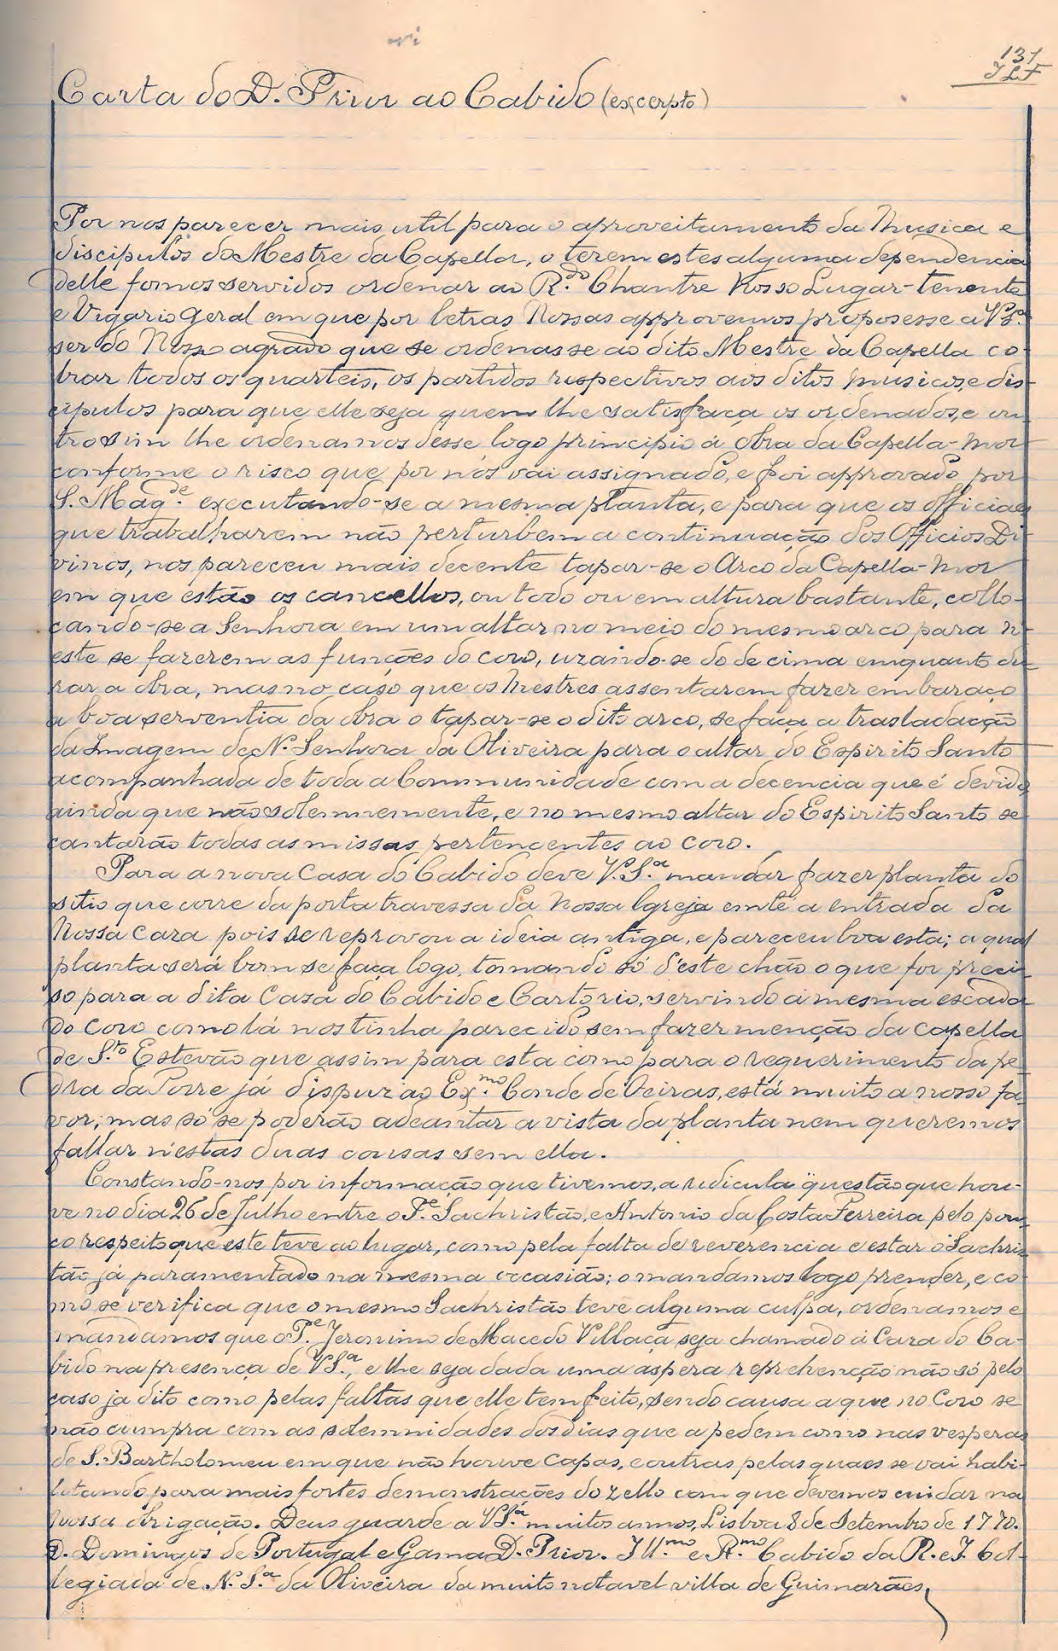 131
JLF
Carta do D. Prior ao Cabido (excerpto)
Por nos parecer mais util para o aproveitamento da Musica e
discipulos do Mestre da Capella, o terem estes alguma dependencia
delle fomos servidos ordenar ao R.do Chantre Nosso Lugar-tenente
e Vigario Geral em que por letras Nossas approvemos proposesse a V.S.a
ser do Nosso agrado que se ordenasse ao dito Mestre da Capella co-
brar todos os quarteis, os partidos respectivos aos ditos musicos, e dis-
cipulos para que elle seja quem lhe satisfaça os ordenados, e ou
trosim lhe ordenamos desse logo principio á obra da Capella-mor
conforme o risco que por nós vai assignado, e foi approvado por
S. Mag.de executando-se a mesma planta, e para que os officiaes
que trabalharem não perturbem a continuação dos Officios Di-
vinos, nos pareceu mais decente tapar-se o Arco da Capella-mor
em que estão os cancellos, ou todo ou em altura bastante, collo-
cando-se a Senhora em um altar no meio do mesmo arco, para n'
este se fazerem as funções do coro, uzando-se do de cima emquanto du-
rar a obra, mas no caso que os Mestres assentarem fazer embaraço
a boa serventia da obra o tapar-se o dito arco, se faça a trasladação
da Imagem de N. Senhora da Oliveira para o altar do Espirito Santo
acompanhada de toda a Communidade com a decencia que é devida
ainda que não solemnemente, e no mesmo altar do Espirito Santo se
cantarão todas as missas pertencentes ao coro.
Para a nova Casa do Cabido deve V.S.a mandar fazer planta do
sitio que corre da porta travessa da Nossa Igreja emté a entrada da
Nossa caza pois se reprovou a ideia antiga, e pareceu boa esta; a qual
planta será bom se faça logo, tomando só d'este chão o que for preci-
so para a dita Caza do Cabido e Cartorio, servindo a mesma escada
do Coro como lá nos tinha parecido sem fazer menção da capella
de S.to Estevão que assim para esta como para o requerimento da pe-
dra da Torre já dispuz ao Ex.mo Conde de Oeiras, está muito a nosso fa-
vor, mas só se poderão adeantar a vista da planta nem queremos
fallar n'estas duas cousas sem ella.
Constando-nos por informação que tivemos, a ridicula questão que hou-
ve no dia 26 de Julho entre o P.e Sachristão, e Antonio da Costa Ferreira pelo pou-
co respeito que este teve ao lugar, como pela falta de reverencia e estar o Sachris
tão já paramentado na mesma occasião; o mandamos logo prender, e co-
mo se verifica que o mesmo Sachristão teve alguma culpa, ordenamos e
mandamos que o P.e Jeronimo de Macedo Villaça seja chamado á Caza do Ca-
bido na presença de V.S.a, e lhe seja dada uma aspera reprehenção não só pelo
caso já dito como pelas faltas que elle tem feito, sendo causa a que no Coro se
não cumpra com as solemnidades dos dias que a pedem como nas vesperas
de S. Bartholomeu em que não houve capas, e outras pelas quaes se vai habi-
litando para mais fortes demonstrações do zello com que devemos cuidar na
Nossa obrigação. Deus guarde a V.S.a muitos annos, Lisboa 8 de Setembro de 1770.
D. Domingos de Portugal e Gama D. Prior. Ill.mo e R.mo Cabido da R. e I. Col-
legiada de N. S.a da Oliveira da muito notavel villa de Guimarães